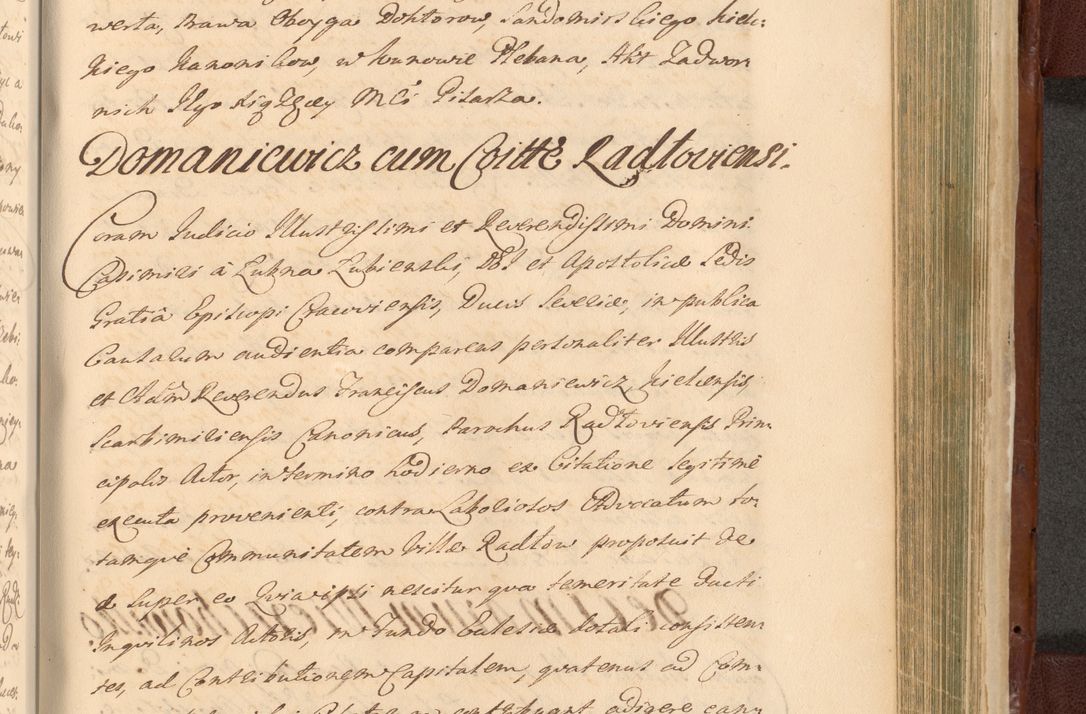 werta, Prawa Oboyga Doktorow, Sandomirskiego Kielc:
kiego Kanonikow, w Kunowie Plebana, Akt Zadwor
nich Jego Xiążęcey Mci Pisarza.
Domaniewicz cum Coitte Radłoviensi.
Coram Judicio Illustrissimi et Reverendissimi Domini
Casimiri à Łubna Łubienski, DEI et Apostolicæ Sedis
Gratiâ Episcopi Cracoviensis, Ducis Severiæ, in publica
Causarum audientia comparens personaliter Illustris
et Adm Reverendus Franciscus Domaniewicz, Kielcensis,
Scarbimiriensis Canonicus, Parochus Radłoviensis Prin
cipalis Actor, in termino hodierno ex Citatione legitimè
executa provenienti, contra Laboliosos Advocatum to:
tamquè Communitatem Villæ Radłow proposuit de
et super eo Quia ipsi nescitur qva temeritate ducti
Inqvilinos Actoris, in Fundo Ecclesiæ dotali consisten:
tes, ad Contributionem Capitalem, qvatenus ad Com: